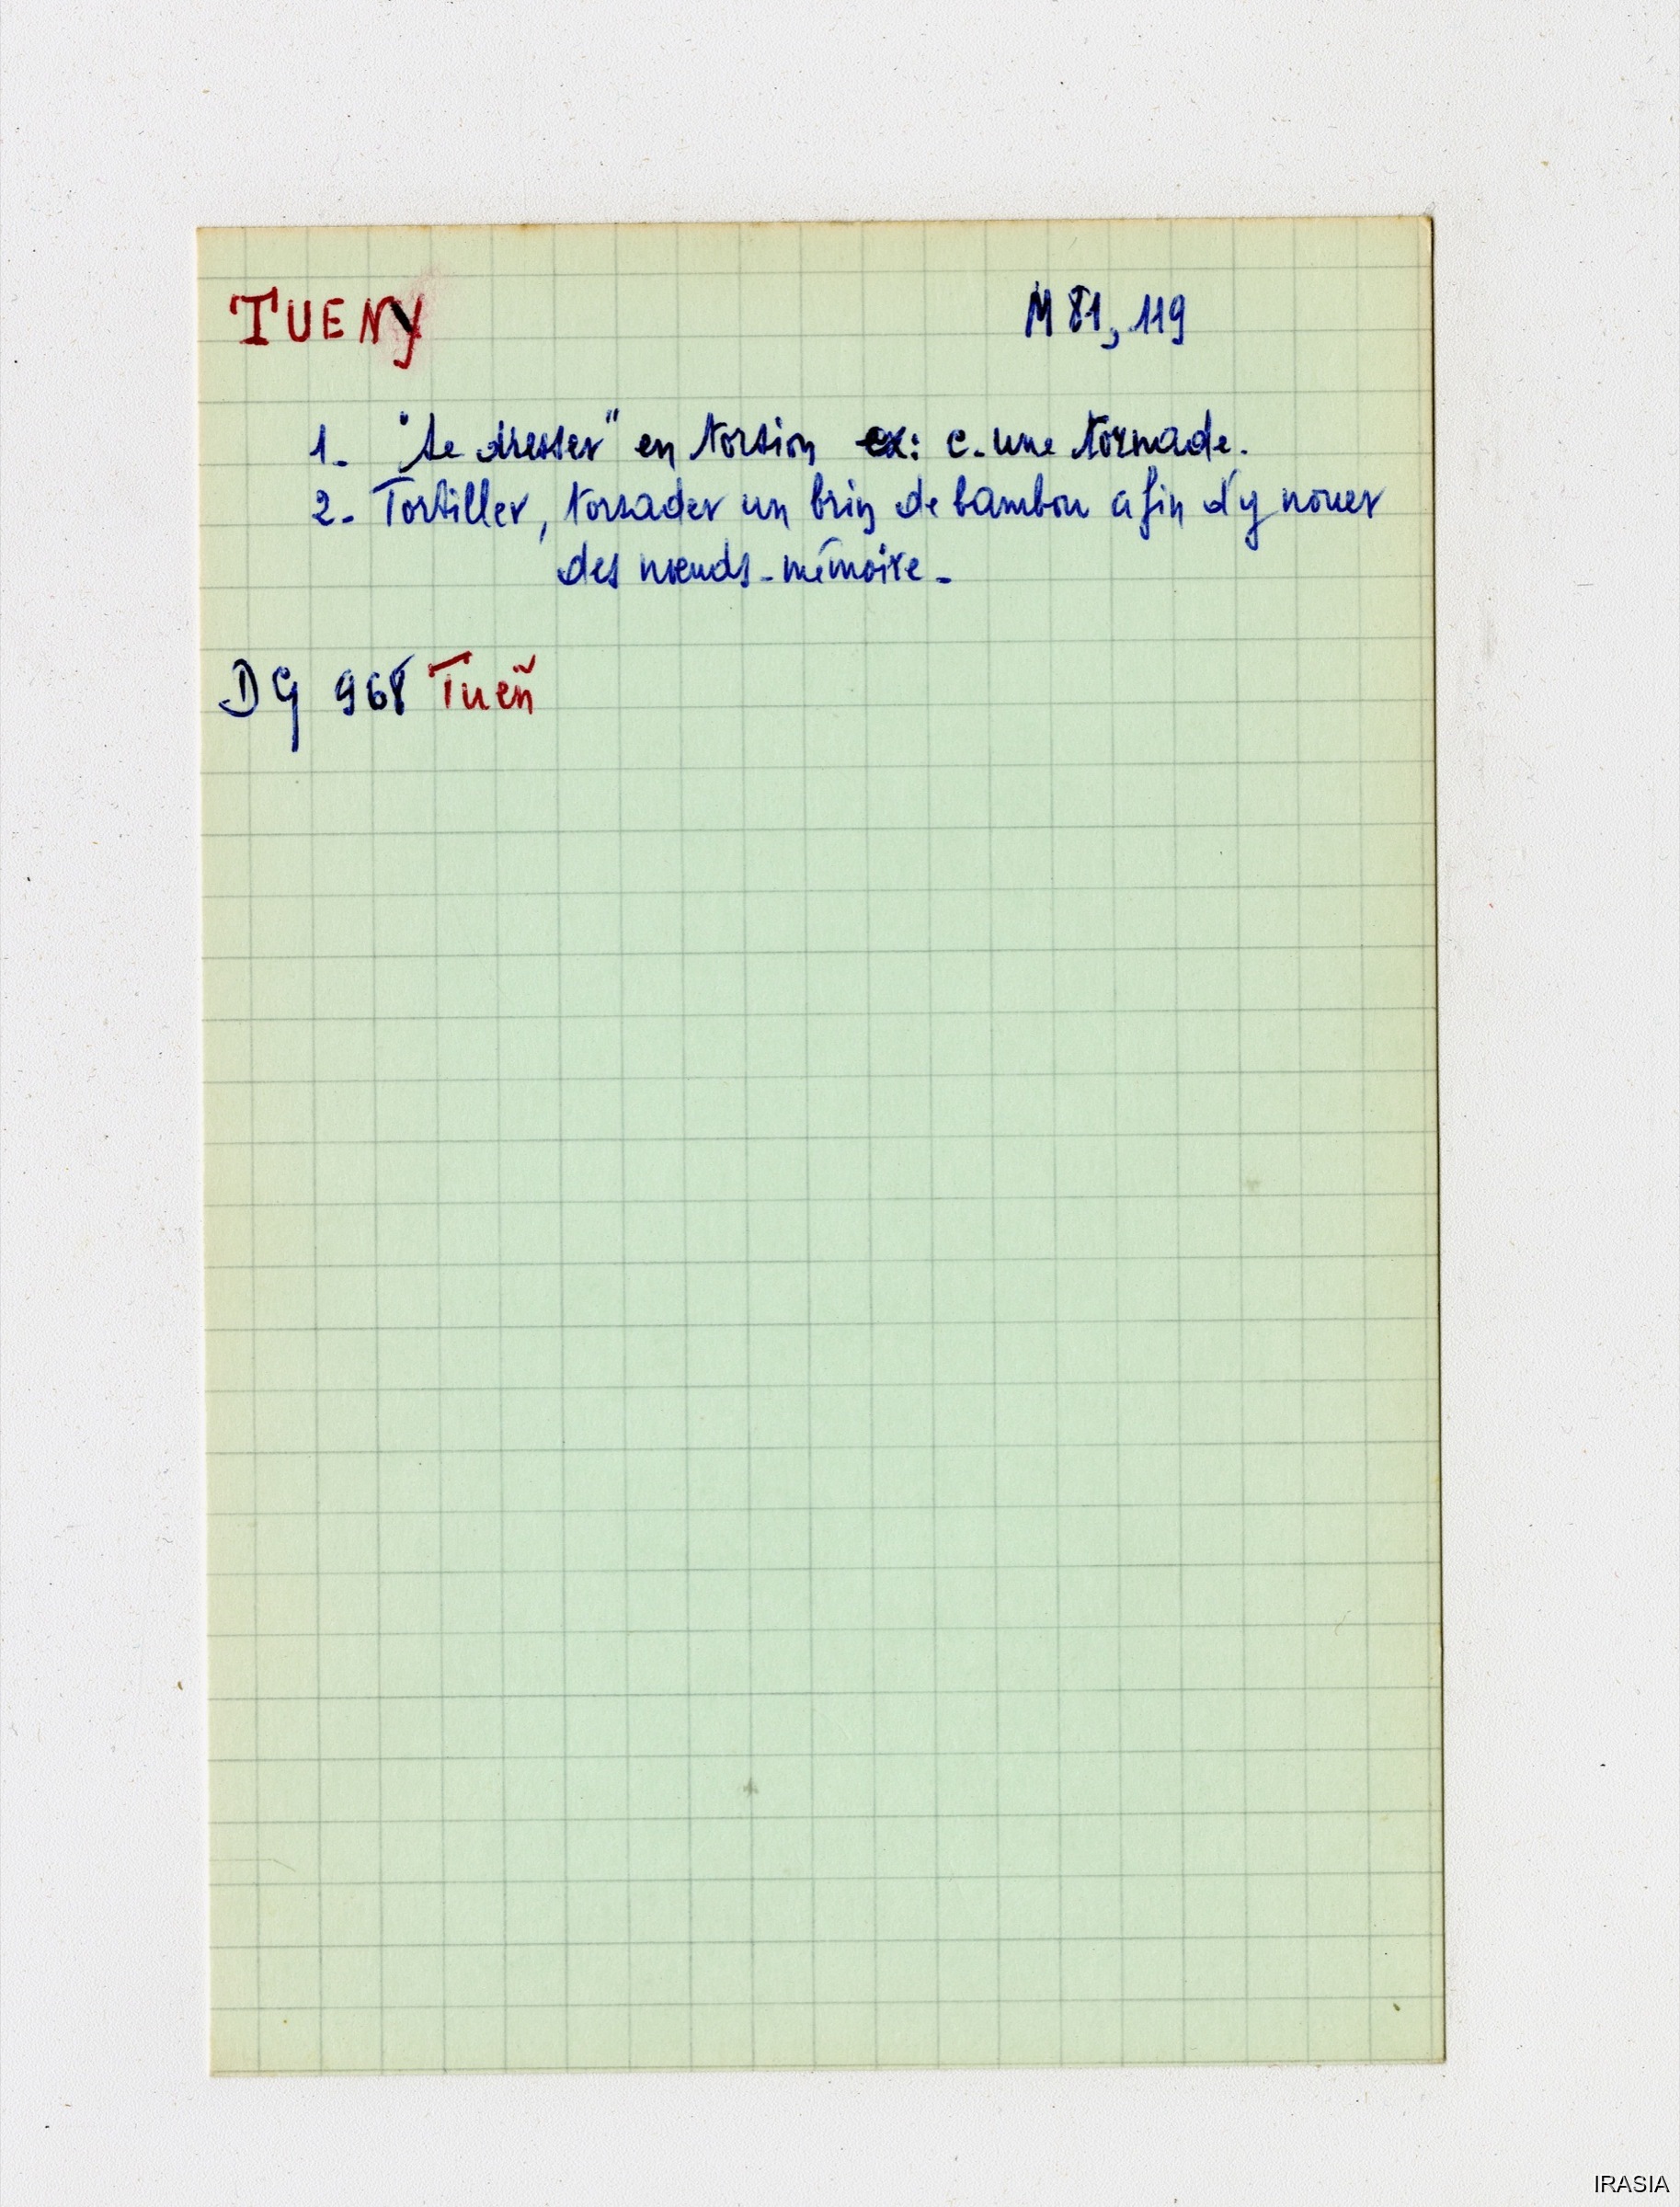 TUENY M 81, 119
1. "se dresser" en torsion ex: c. une tornade.
2. Tortiller, torsader un brin de bambou afin d'y nouer
des nœuds-mémoire.
DG 968 Tueñ
IRASIA